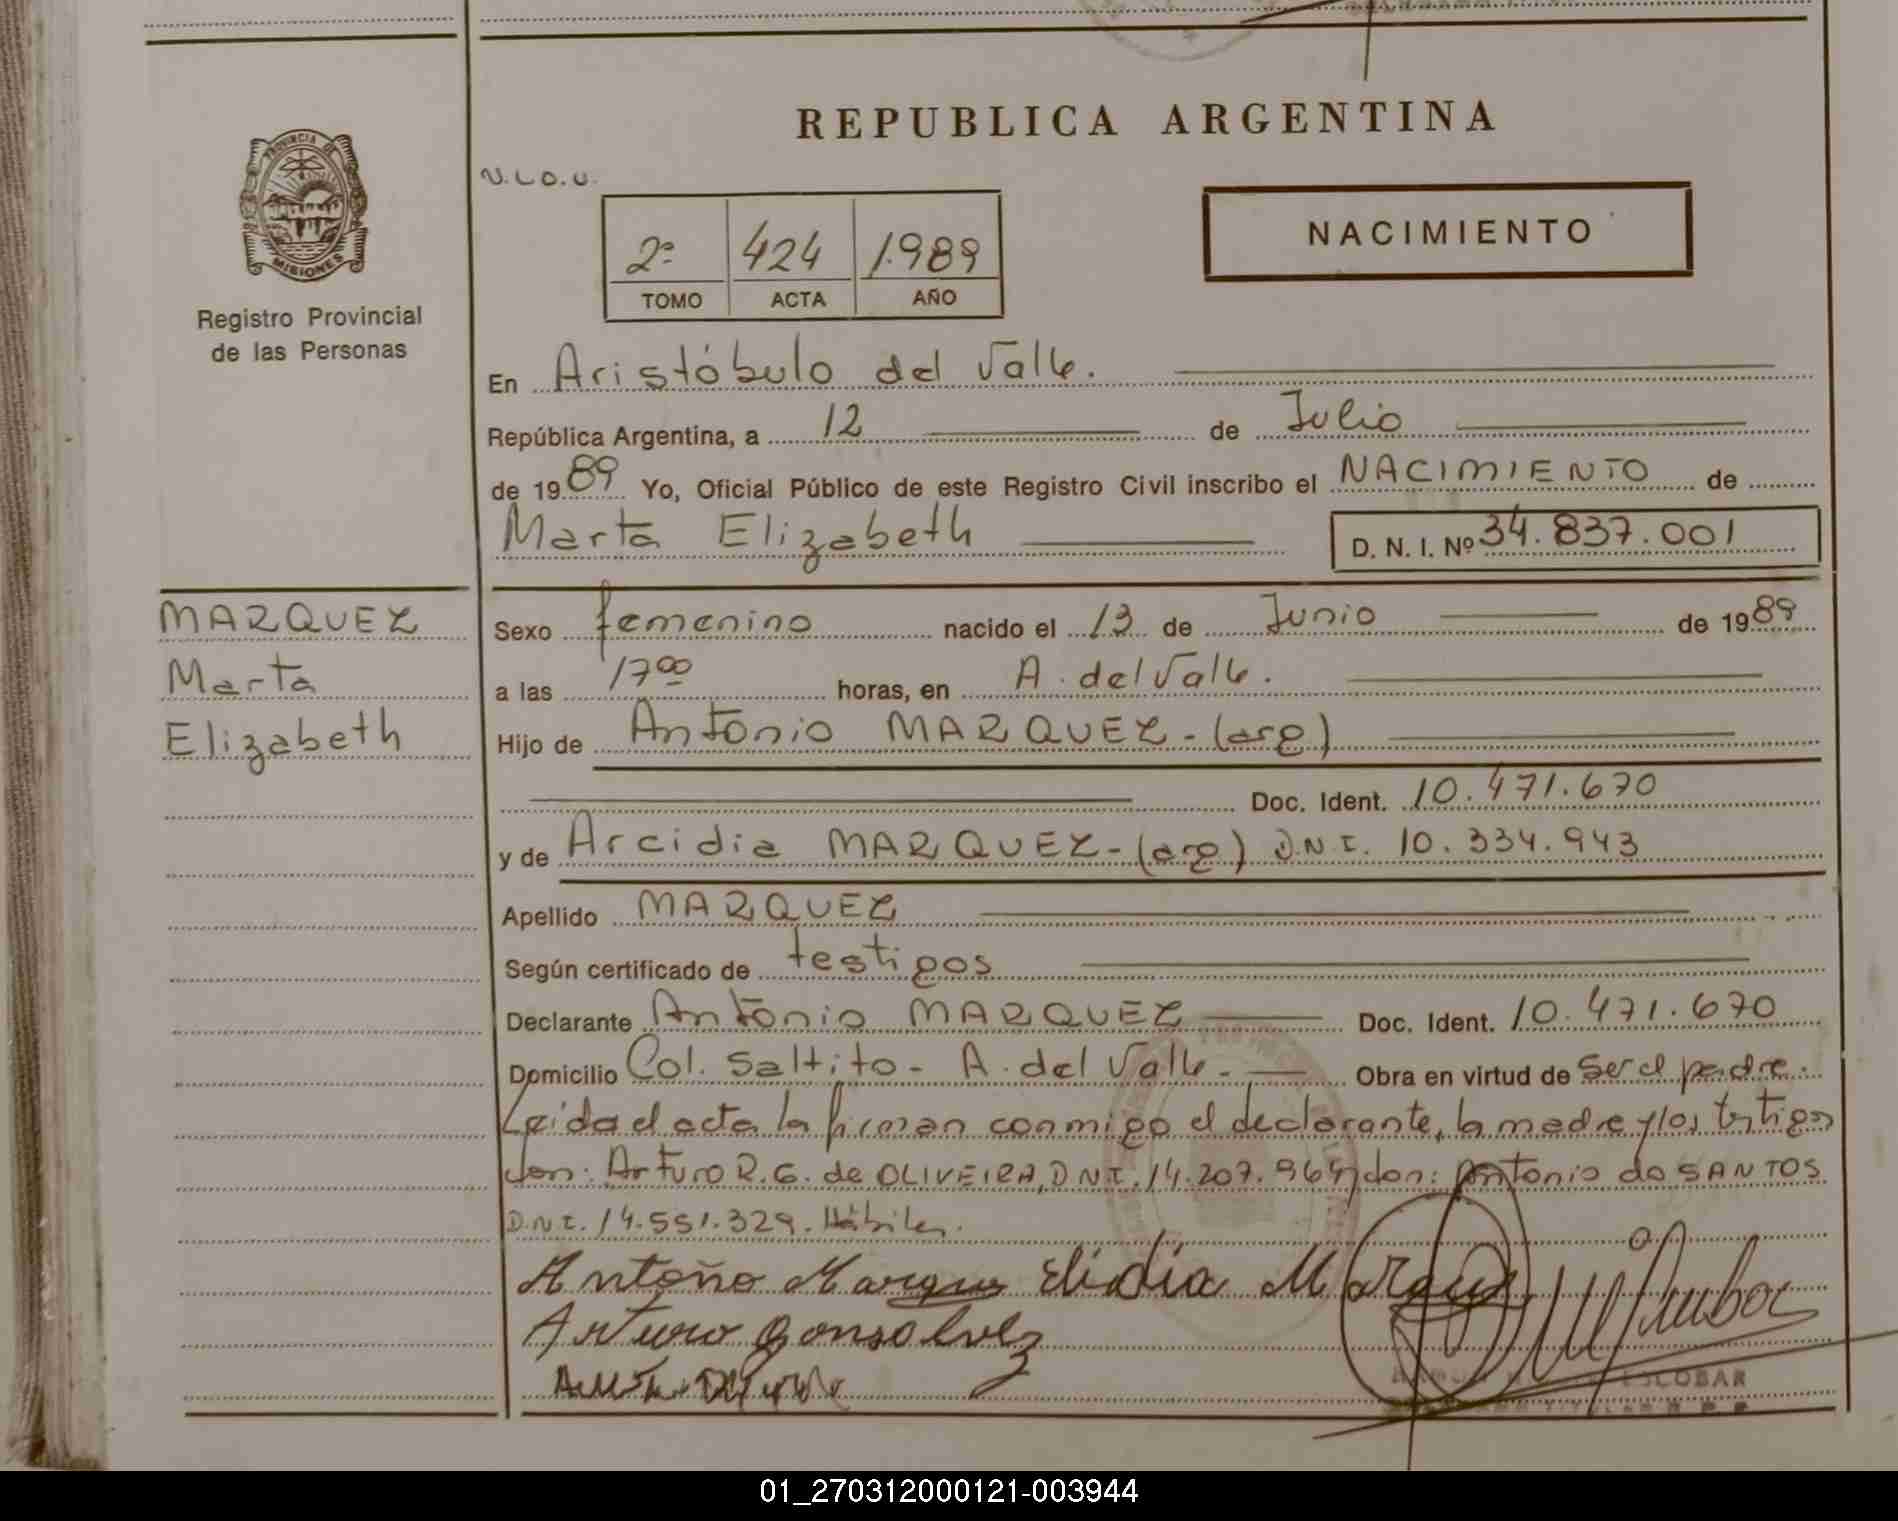 REPUBLICA ARGENTINA
PROVINCIA DE
MISIONES
Registro Provincial
de las Personas
N.L.O.U.
NACIMIENTO
2º 424 1.989
TOMO ACTA AÑO
En Aristóbulo del Valle.
República Argentina, a 12 de Julio
de 1989 Yo, Oficial Público de este Registro Civil inscribo el NACIMIENTO de
Marta Elizabeth D. N. I. Nº 34.837.001
MARQUEZ
Marta
Elizabeth
Sexo femenino nacido el 13 de Junio de 1989
a las 17 00 horas, en A. del Valle.
Hijo de Antonio MARQUEZ - (arg)
Doc. Ident. 10.471.670
y de Arcidia MARQUEZ - (arg) D.N.I. 10.334.943
Apellido MARQUEZ
Según certificado de testigos
Declarante Antonio MARQUEZ Doc. Ident. 10.471.670
Domicilio Col. Saltito - A. del Valle - Obra en virtud de ser el padre.
Leida el acta la firman conmigo el declarante, la madre y los testigos
don: Arturo R.G. de OLIVEIRA, D.N.I. 14.207.964 y don: Antonio do SANTOS
D.N.I. 14.551.329. Hábiles.
Antoño Marques Elidia Marques
Arturo Gonsalvez
ESCOBAR
01_270312000121-003944